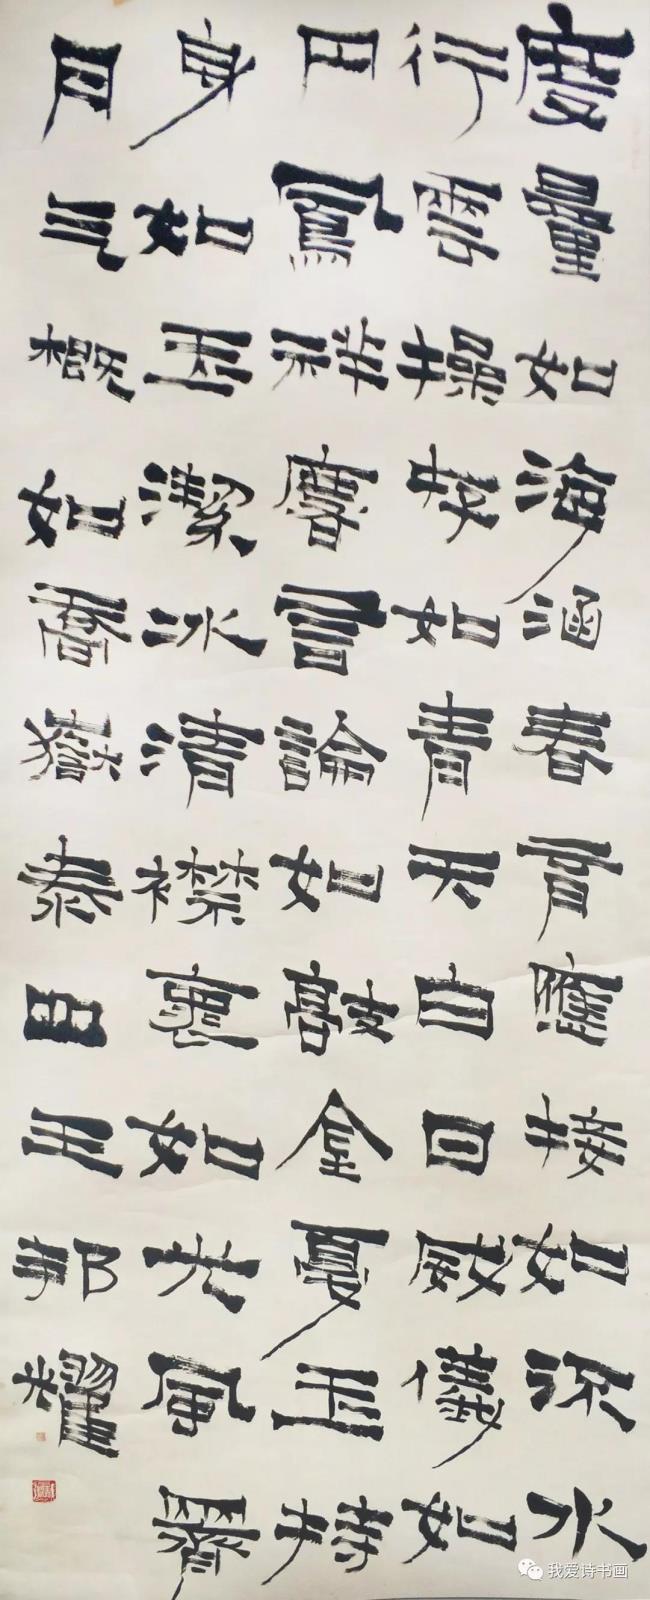 度量如海涵春育應接如流水
行雲操存如青天白日威儀如
丹鳳祥麐言論如敲金戛玉持
身如玉潔冰清襟褱如光風霽
月气概如喬嶽泰山王邦耀
我爱诗书画